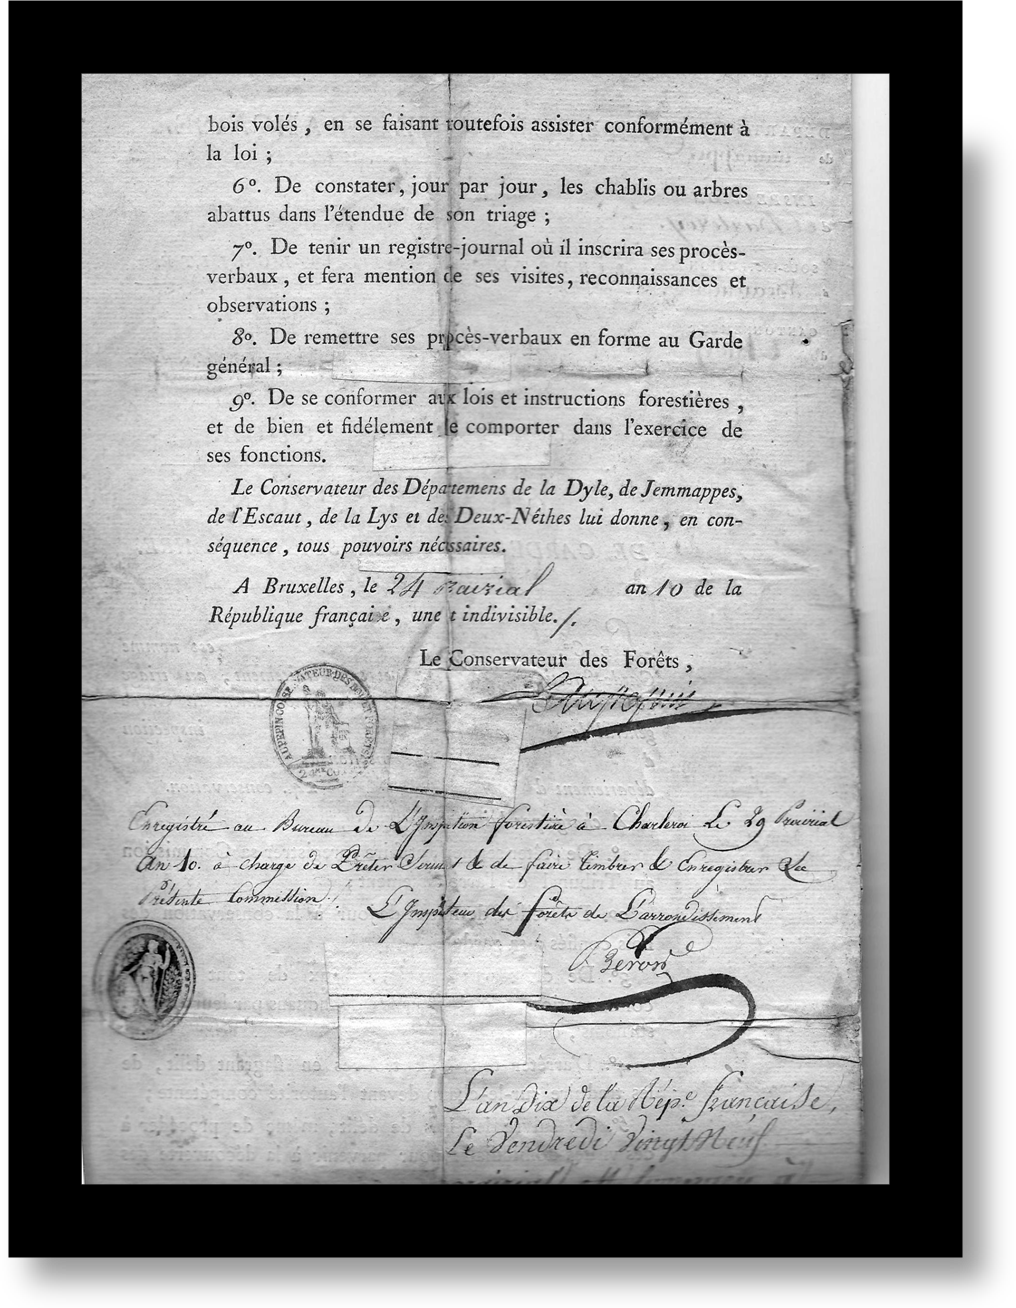 bois volés , en se faisant toutefois assister conformément à
la loi ;
6º. De constater, jour par jour, les chablis ou arbres
abattus dans l'étendue de son triage ;
7º. De tenir un registre-journal où il inscrira ses procès-
verbaux , et fera mention de ses visites, reconnaissances et
observations ;
8º. De remettre ses procès-verbaux en forme au Garde
général ;
9º. De se conformer aux lois et instructions forestières ,
et de bien et fidélement se comporter dans l'exercice de
ses fonctions.
Le Conservateur des Départemens de la Dyle, de Jemmappes,
de l'Escaut , de la Lys et des Deux-Néthes lui donne , en con-
séquence , tous pouvoirs nécessaires.
A Bruxelles , le 24 prairial an 10 de la
République française , une et indivisible./.
Le Conservateur des Forêts ,
Enregistré au Bureau de L'Inspection forestière à Charleroi Le 29 Prairial
an 10. à charge de Prêter Serment & de faire timbrer & Enregistrer
Présente Commission.
L'Inspecteur des forêts de L'arrondissement
L'an Dix de la Rép.e francaise,
Le Vendredi vingt Neuf